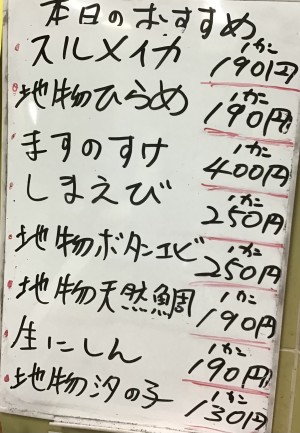 本日のおすすめ
スルメイカ 1カン 190円
地物ひらめ 1カン 190円
ますのすけ 1カン 400円
しまえび 1カン 250円
地物ボタンエビ 1カン 250円
地物天然鯛 1カン 190円
生にしん 1カン 190円
地物汐の子 1カン 130円